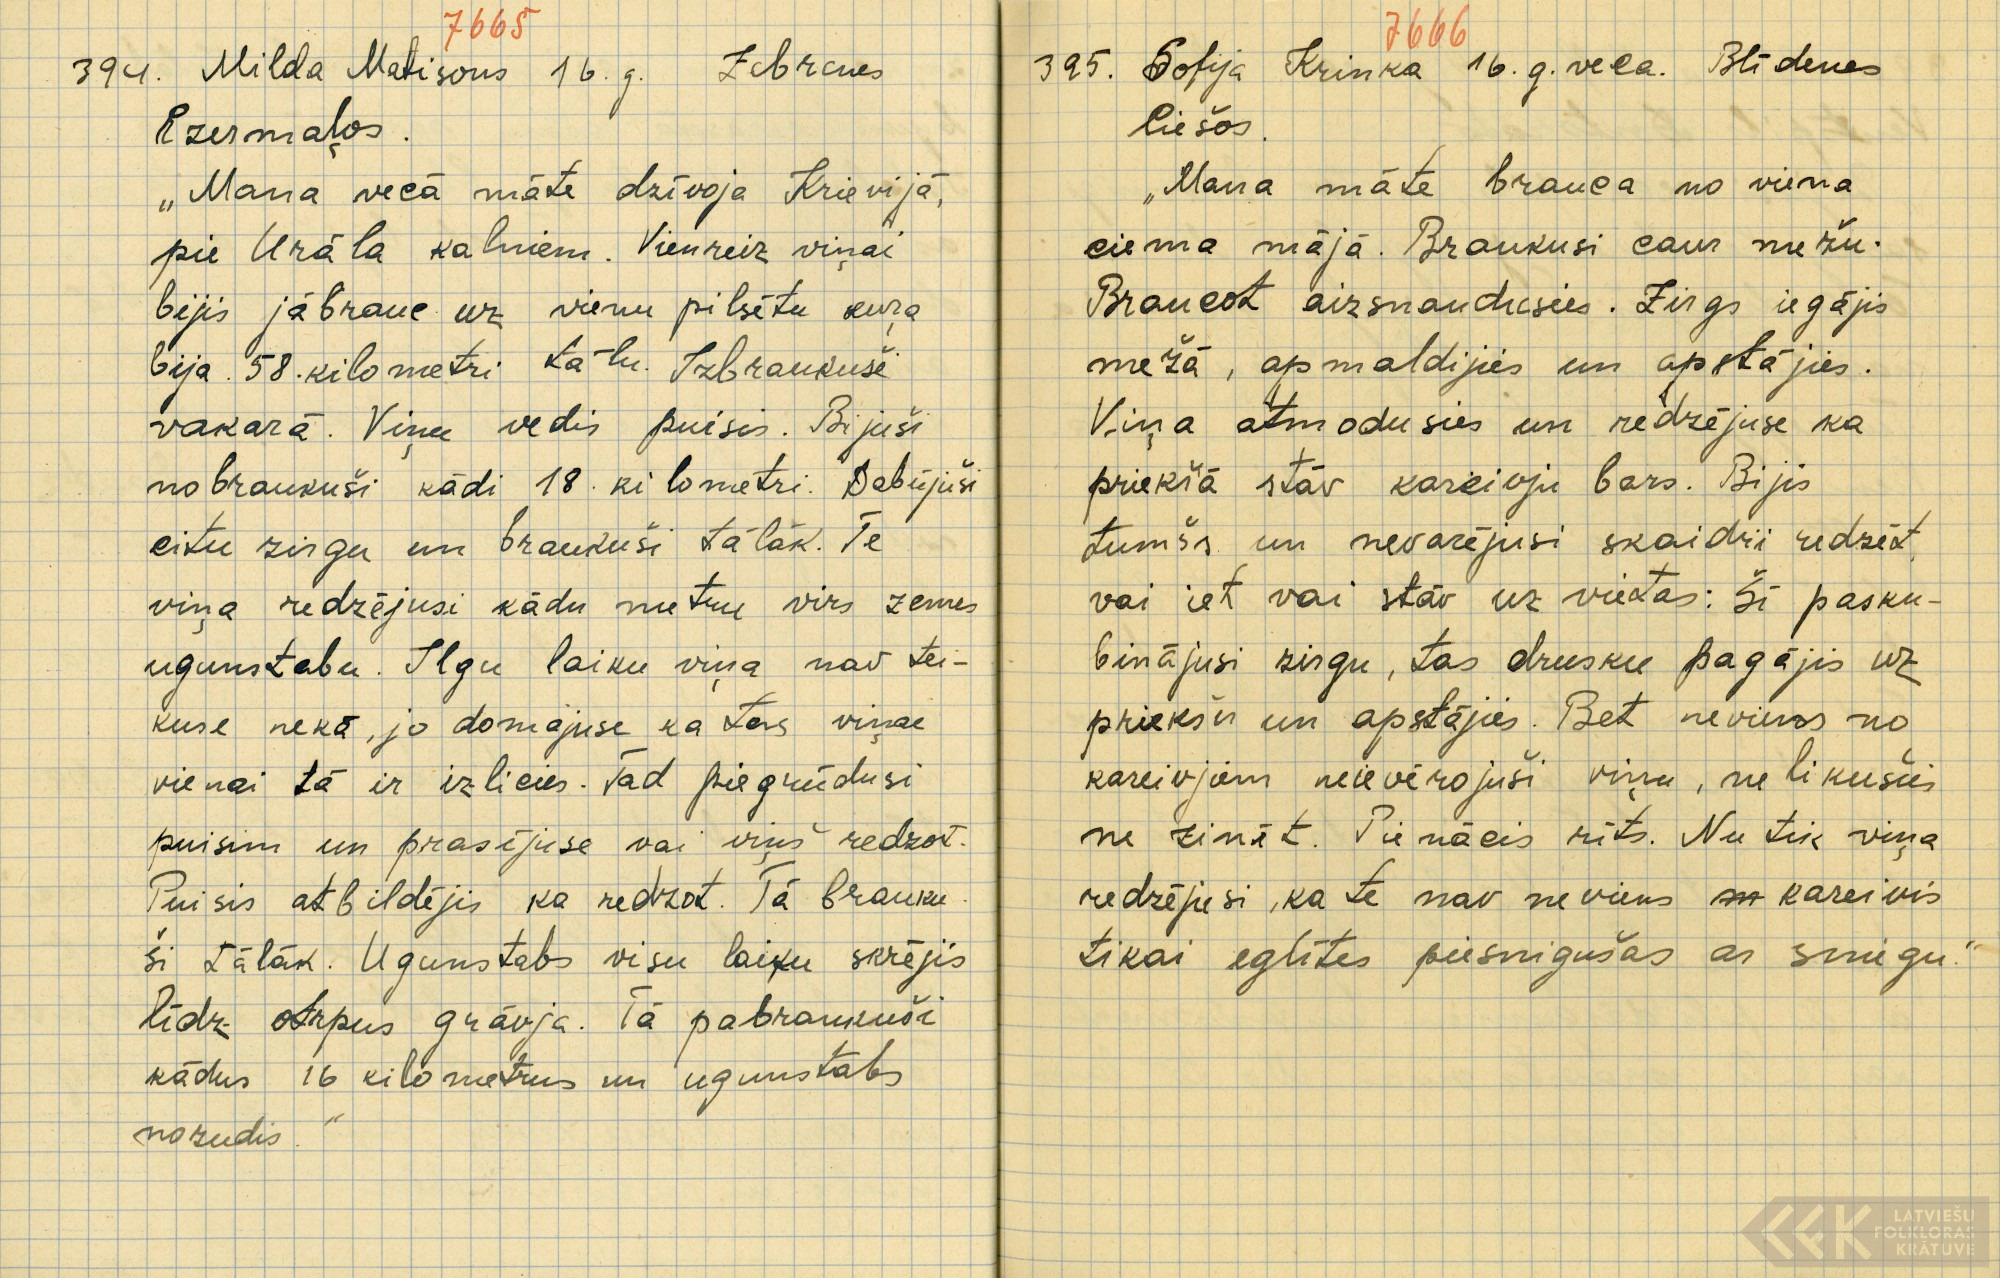 7665
394. Milda Matisons 16. g. Zebrenes
Ezermaļos.
„Mana vecā māte dzīvoja Krievijā,
pie Urāla kalniem. Vienreiz viņai
bijis jābrauc uz vienu pilsētu kuŗa
bija 58. kilometri tālu. Izbraukuši
vakarā. Viņu vedis puisis. Bijuši
nobraukuši kādi 18. kilometri. Dabūjuši
citu zirgu un braukuši tālāk. Te
viņa redzējusi kādu metru virs zemes
ugunstabu. Ilgu laiku viņa nav tei-
kuse nekā, jo domājuse ka tas viņai
vienai tā ir izlicies. Tad piegrūdusi
puisim un prasījuse vai viņš redzot.
Puisis atbildējis ka redzot. Tā brauku-
ši tālāk. Ugunstabs visu laiku skrējis
līdz otrpus grāvja. Tā pabraukuši
kādus 16 kilometrus un ugunstabs
nozudis."
7666
395. Sofija Krinka 16. g. veca. Blīdenes
Ciešos.
„Mana māte brauca no viena
ciema mājā. Braukusi caur mežu.
Braucot aizsnaudusies. Zirgs iegājis
mežā, apmaldijies un apstājies.
Viņa atmodusies un redzējuse ka
priekšā stāv kareivju bars. Bijis
tumšs un nevarējusi skaidri redzēt,
vai iet vai stāv uz vietas: Šī pasku-
binājusi zirgu, tas drusku pagājis uz
priekšu un apstājies. Bet neviens no
kareivjiem neievērojuši viņu, ne likušies
ne zināt. Pienācis rīts. Nu tik viņa
redzējusi, ka te nav neviens kareivis
tikai eglītes piesnigušas ar sniegu."
LATVIEŠU
FOLKLORAS
KRĀTUVE